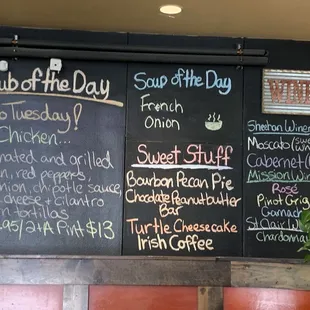 ub of the Day
o Tuesday!
Chicken...
nated and grilled
n, red peppers,
nion, chipotle sauce,
cheese + cilantro
n tortillas
.95/2 + A Pint $13
Soup of the Day
French
Onion
Sweet Stuff
Bourbon Pecan Pie
Chocolate Peanutbutter
Bar
Turtle Cheesecake
Irish Coffee
WINE
Sheehan Winer
Moscato
Cabernet
Mission Wine
Rosé
Pinot Grig
Garnach
St Clair Win
Chardonnay